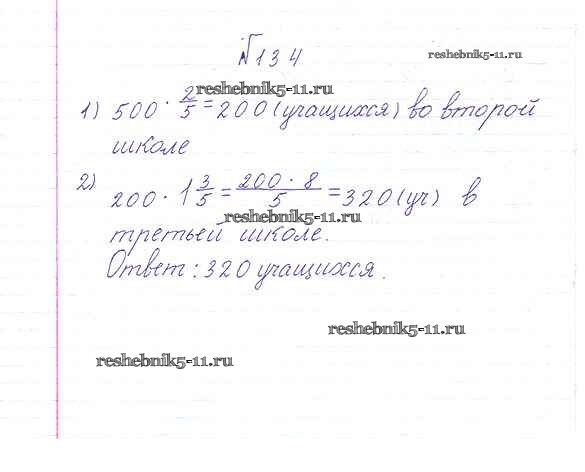 №134
reshebnik5-11.ru
reshebnik5-11.ru
1) 500 · 2/5 = 200 (учащихся) во второй
школе
2) 200 · 1 3/5 = 200 · 8/5 = 320 (уч) в
reshebnik5-11.ru
третьей школе.
Ответ: 320 учащихся.
reshebnik5-11.ru
reshebnik5-11.ru